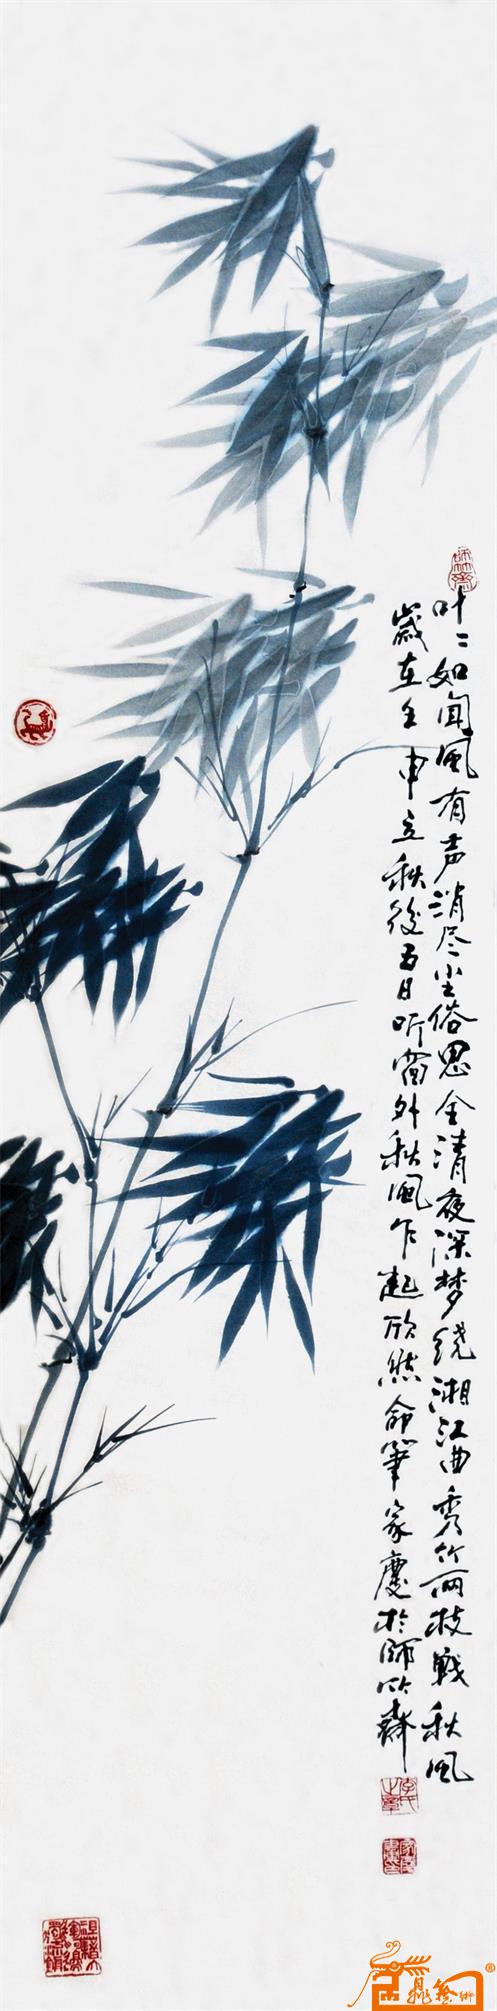 叶〻如闻风有声消尽尘俗思全清夜深梦绕湘江曲秀竹两枝战秋风
歲在壬申立秋後五日听窗外秋风乍起欣然命筆家慶於师竹斋